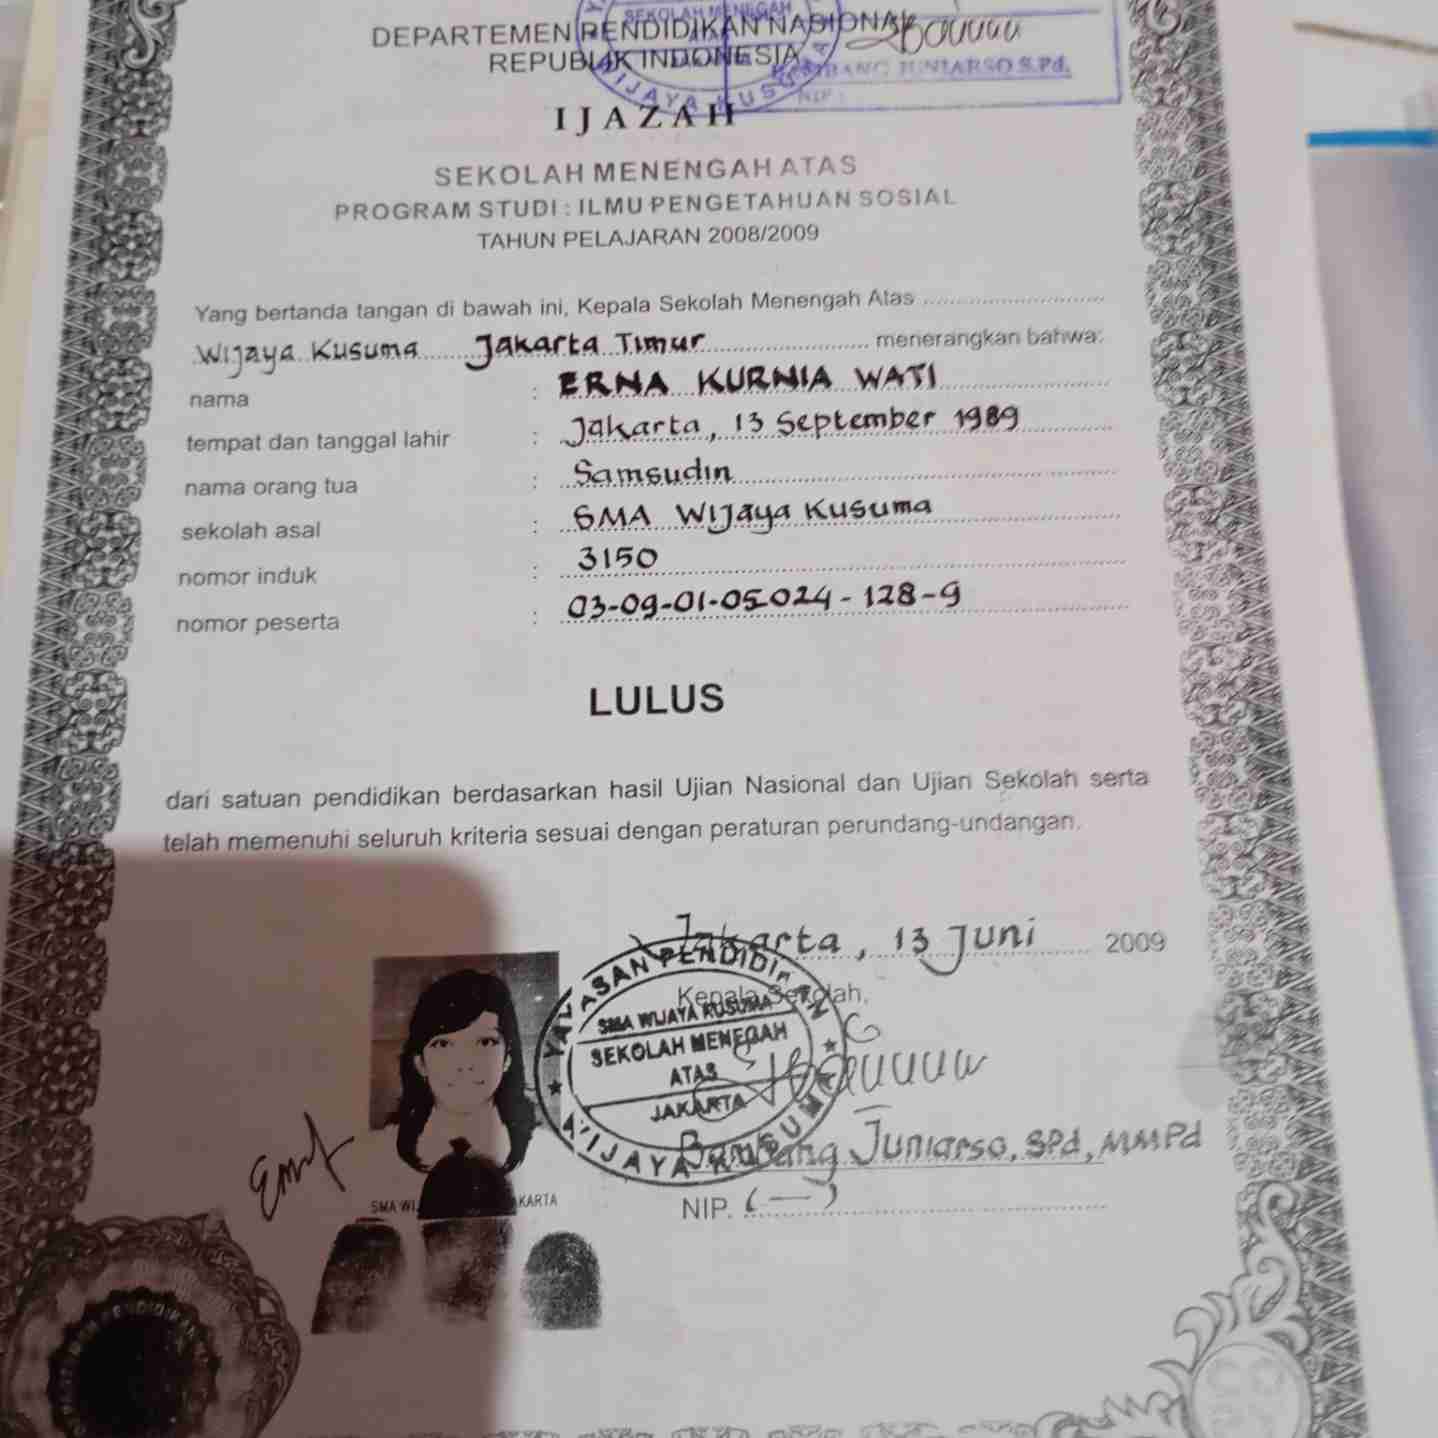 DEPARTEMEN PENDIDIKAN NASIONAL
REPUBLIK INDONESIA
SEKOLAH MENEGAH
WIJAYA KUSUMA
BAMBANG JUNIARSO S.Pd.
NIP :
IJAZAH
SEKOLAH MENENGAH ATAS
PROGRAM STUDI : ILMU PENGETAHUAN SOSIAL
TAHUN PELAJARAN 2008/2009
Yang bertanda tangan di bawah ini, Kepala Sekolah Menengah Atas
Wijaya Kusuma Jakarta Timur menerangkan bahwa:
nama : ERNA KURNIA WATI
tempat dan tanggal lahir : Jakarta, 13 September 1989
nama orang tua : Samsudin
sekolah asal : SMA Wijaya Kusuma
nomor induk : 3150
nomor peserta : 03-09-01-05-024-128-9
LULUS
dari satuan pendidikan berdasarkan hasil Ujian Nasional dan Ujian Sekolah serta
telah memenuhi seluruh kriteria sesuai dengan peraturan perundang-undangan.
Jakarta, 13 Juni 2009
Kepala Sekolah,
YAYASAN PENDIDIKAN
SMA WIJAYA KUSUMA
SEKOLAH MENEGAH
ATAS
JAKARTA
WIJAYA KUSUMA
Bambang Juniarso, SPd, MMPd
NIP. (—)
SMA WIJ KARTA